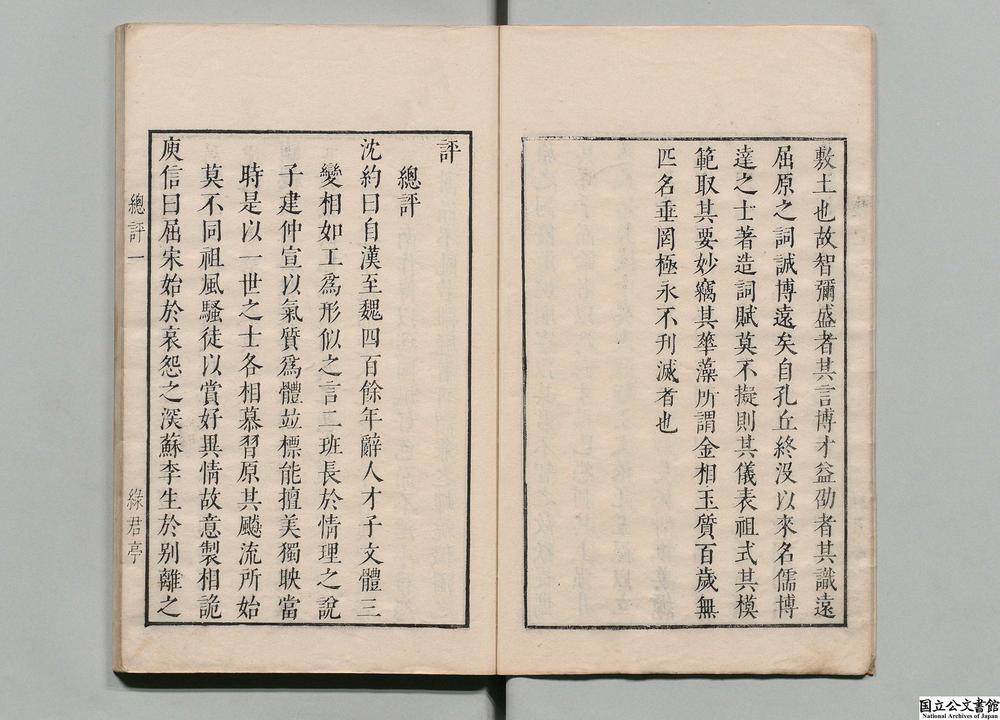 敷土也故智彌盛者其言博才益劭者其識遠
屈原之詞誠博遠矣自孔丘終沒以來名儒博
達之士著造詞賦莫不擬則其儀表祖式其模
範取其要妙竊其華藻所謂金相玉質百歲無
匹名垂罔極永不刊滅者也
評
總評
沈約曰自漢至魏四百餘年辭人才子文體三
變相如工爲形似之言二班長於情理之說
子建仲宣以氣質爲體並標能擅美獨映當
時是以一世之士各相慕習原其飈流所始
莫不同祖風騷徒以賞好異情故意製相詭
庾信曰屈宋始於哀怨之深蘇李生於別離之
總評一
綠君亭
国立公文書館
National Archives of Japan